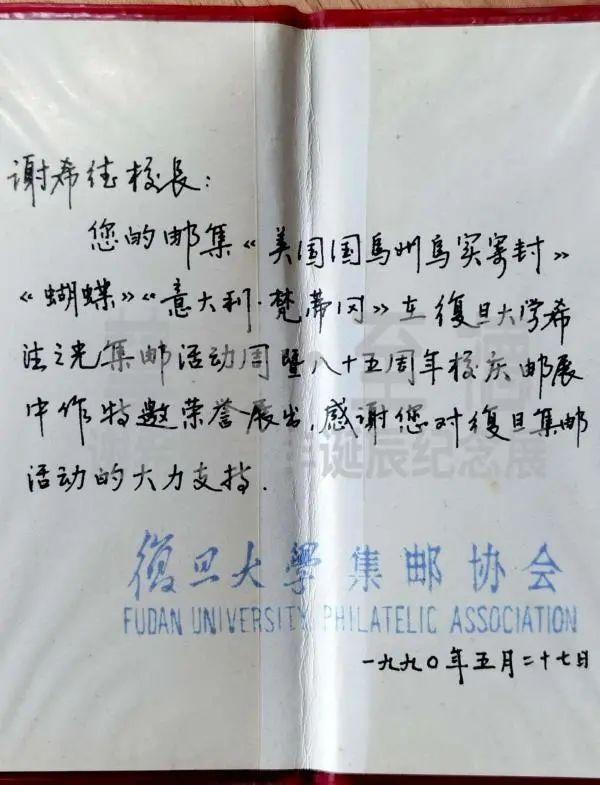 谢希德校长:
您的邮集《美国国鸟州鸟实寄封》
《蝴蝶》《意大利·梵蒂冈》在復旦大学希
法之光集邮活动周暨八十五周年校庆邮展
中作特邀荣誉展出,感谢您对復旦集邮
诞辰纪念展
活动的大力支持.
復旦大學集邮协会
FUDAN UNIVERSITY PHILATELIC ASSOCIATION
一九九〇年五月二十七日